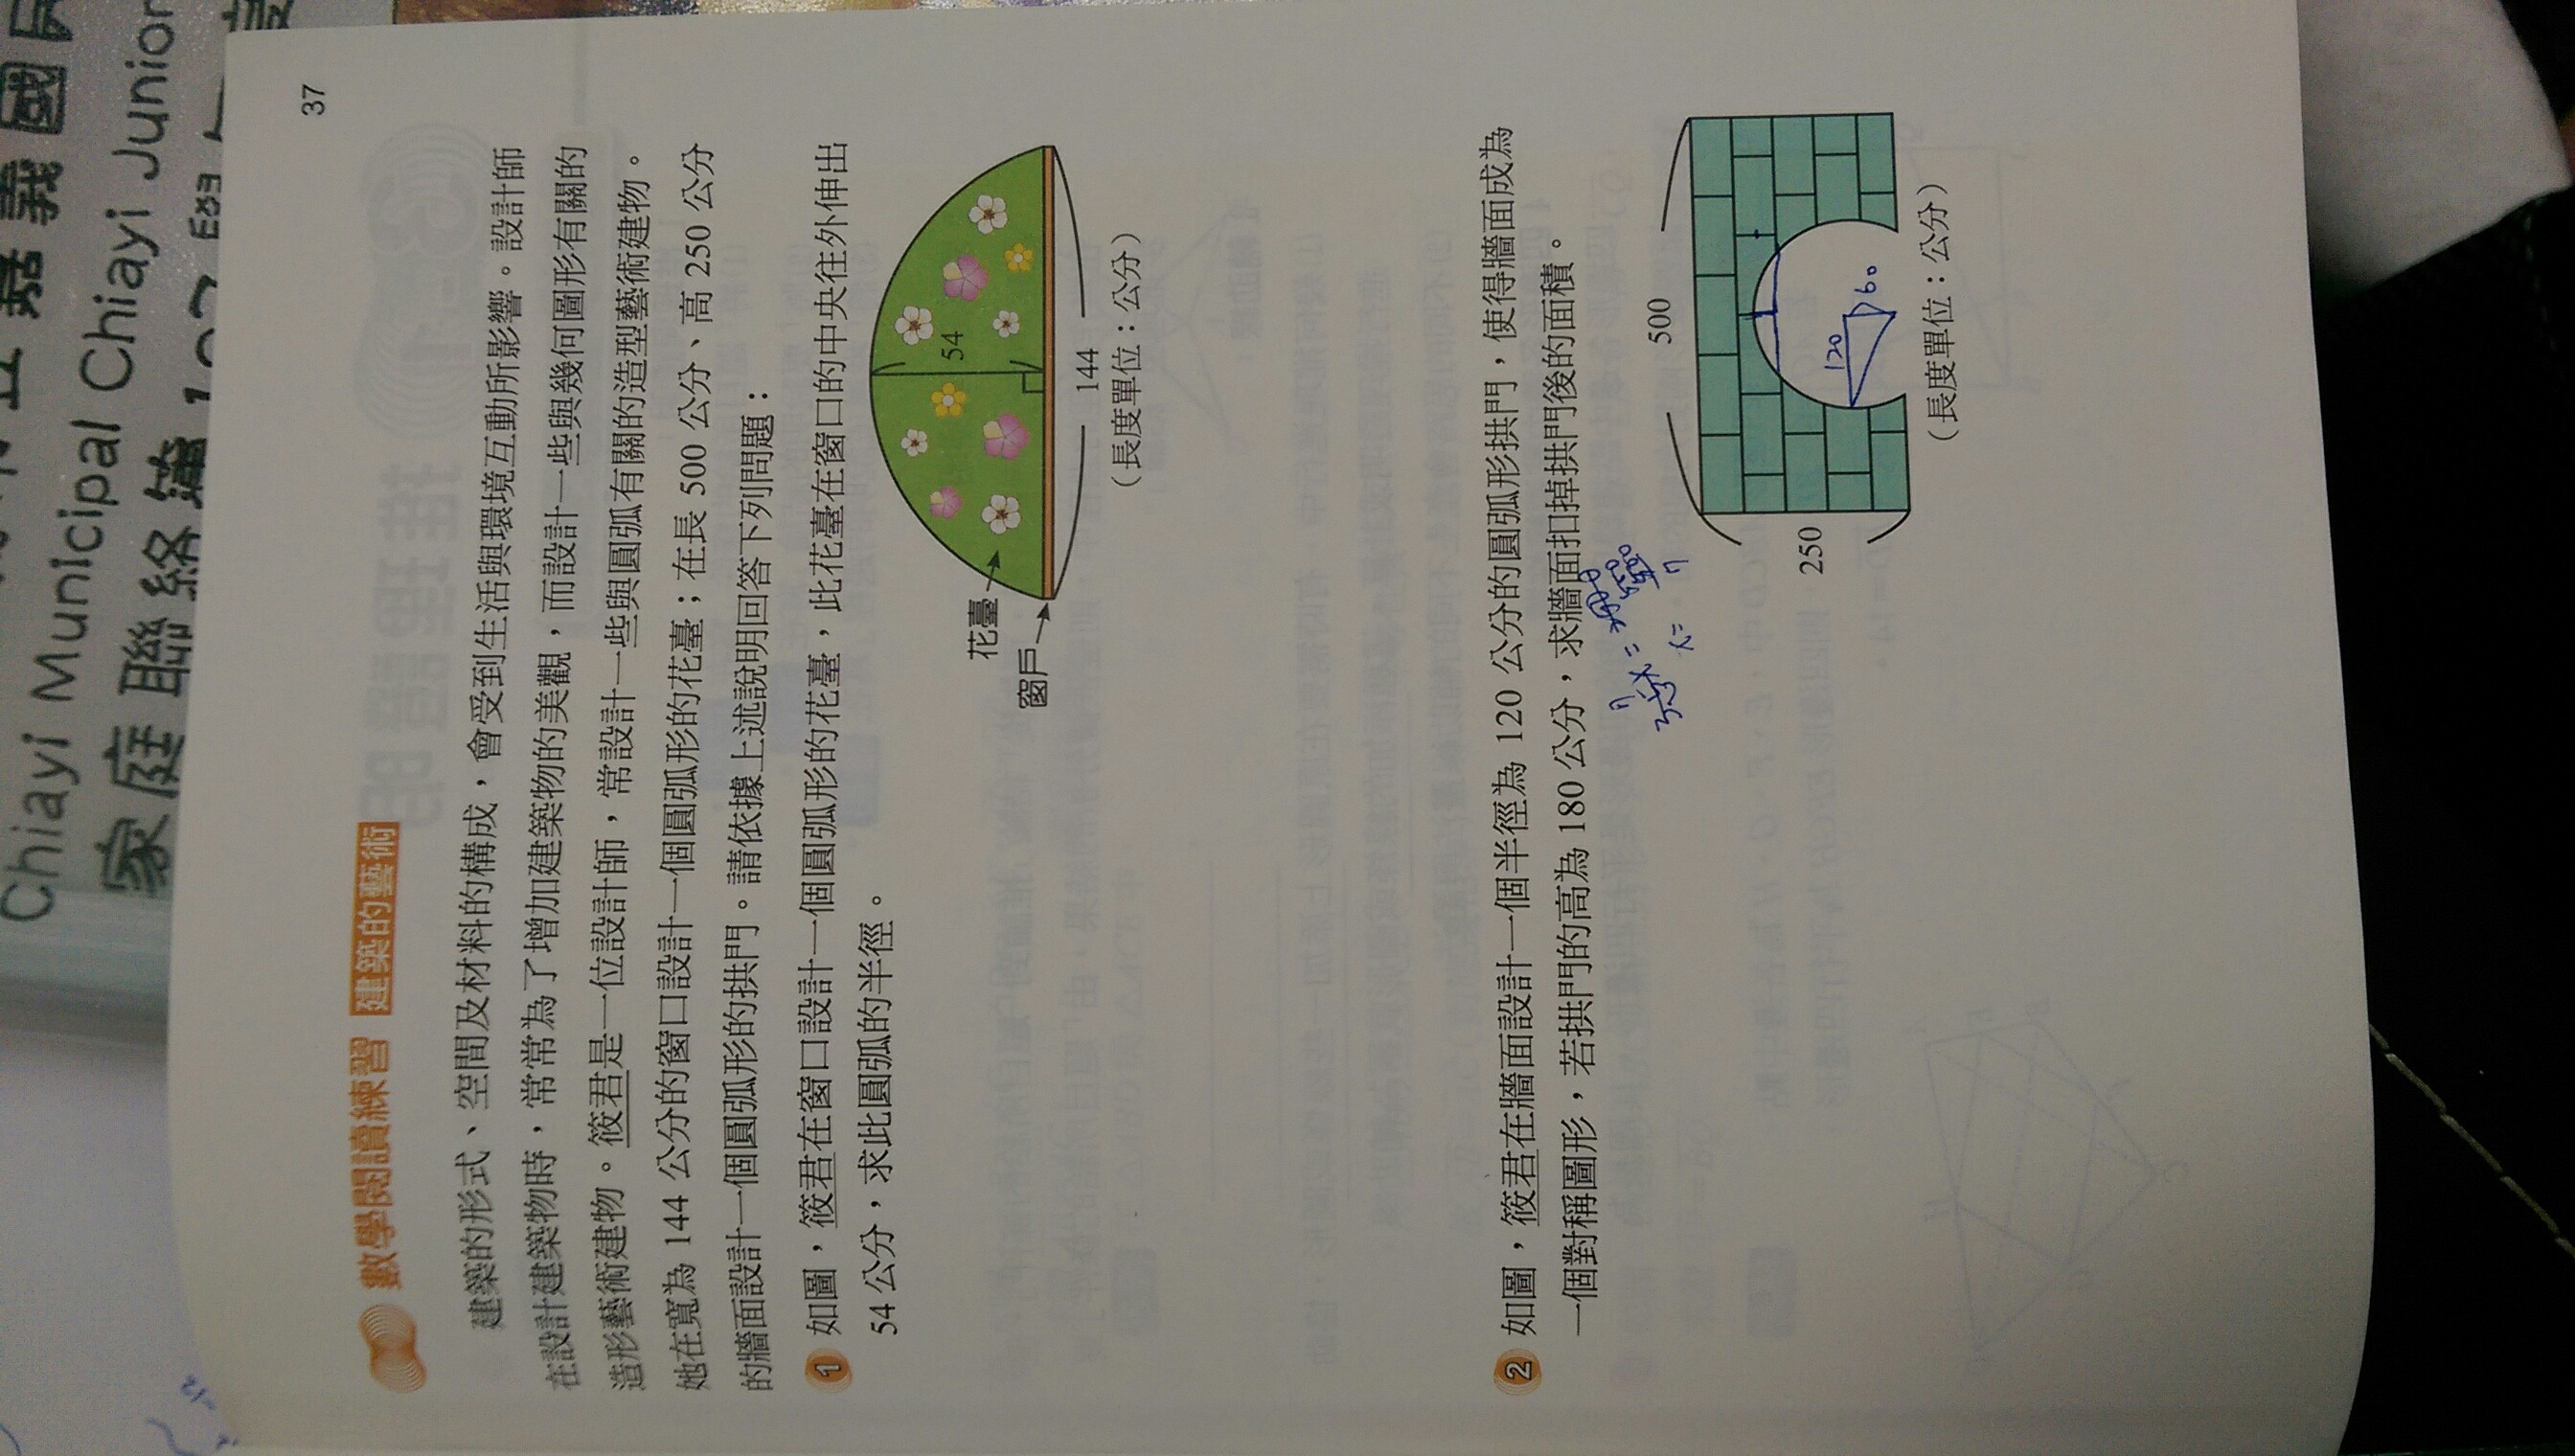 嘉義國民
Chiayi Municipal Chiayi Junior
家庭聯絡簿
37
數學閱讀練習 建築的藝術
建築的形式、空間及材料的構成，會受到生活與環境互動所影響。設計師
在設計建築物時，常常為了增加建築物的美觀，而設計一些與幾何圖形有關的
造形藝術建物。筱君是一位設計師，常設計一些與圓弧有關的造型藝術建物。
她在寬為 144 公分的窗口設計一個圓弧形的花臺；在長 500 公分、高 250 公分
的牆面設計一個圓弧形的拱門。請依據上述說明回答下列問題：
1 如圖，筱君在窗口設計一個圓弧形的花臺，此花臺在窗口的中央往外伸出
54 公分，求此圓弧的半徑。
花臺
窗戶
54
144
（長度單位：公分）
2 如圖，筱君在牆面設計一個半徑為 120 公分的圓弧形拱門，使得牆面成為
一個對稱圖形，若拱門的高為 180 公分，求牆面扣掉拱門後的面積。
500
250
120
60
（長度單位：公分）